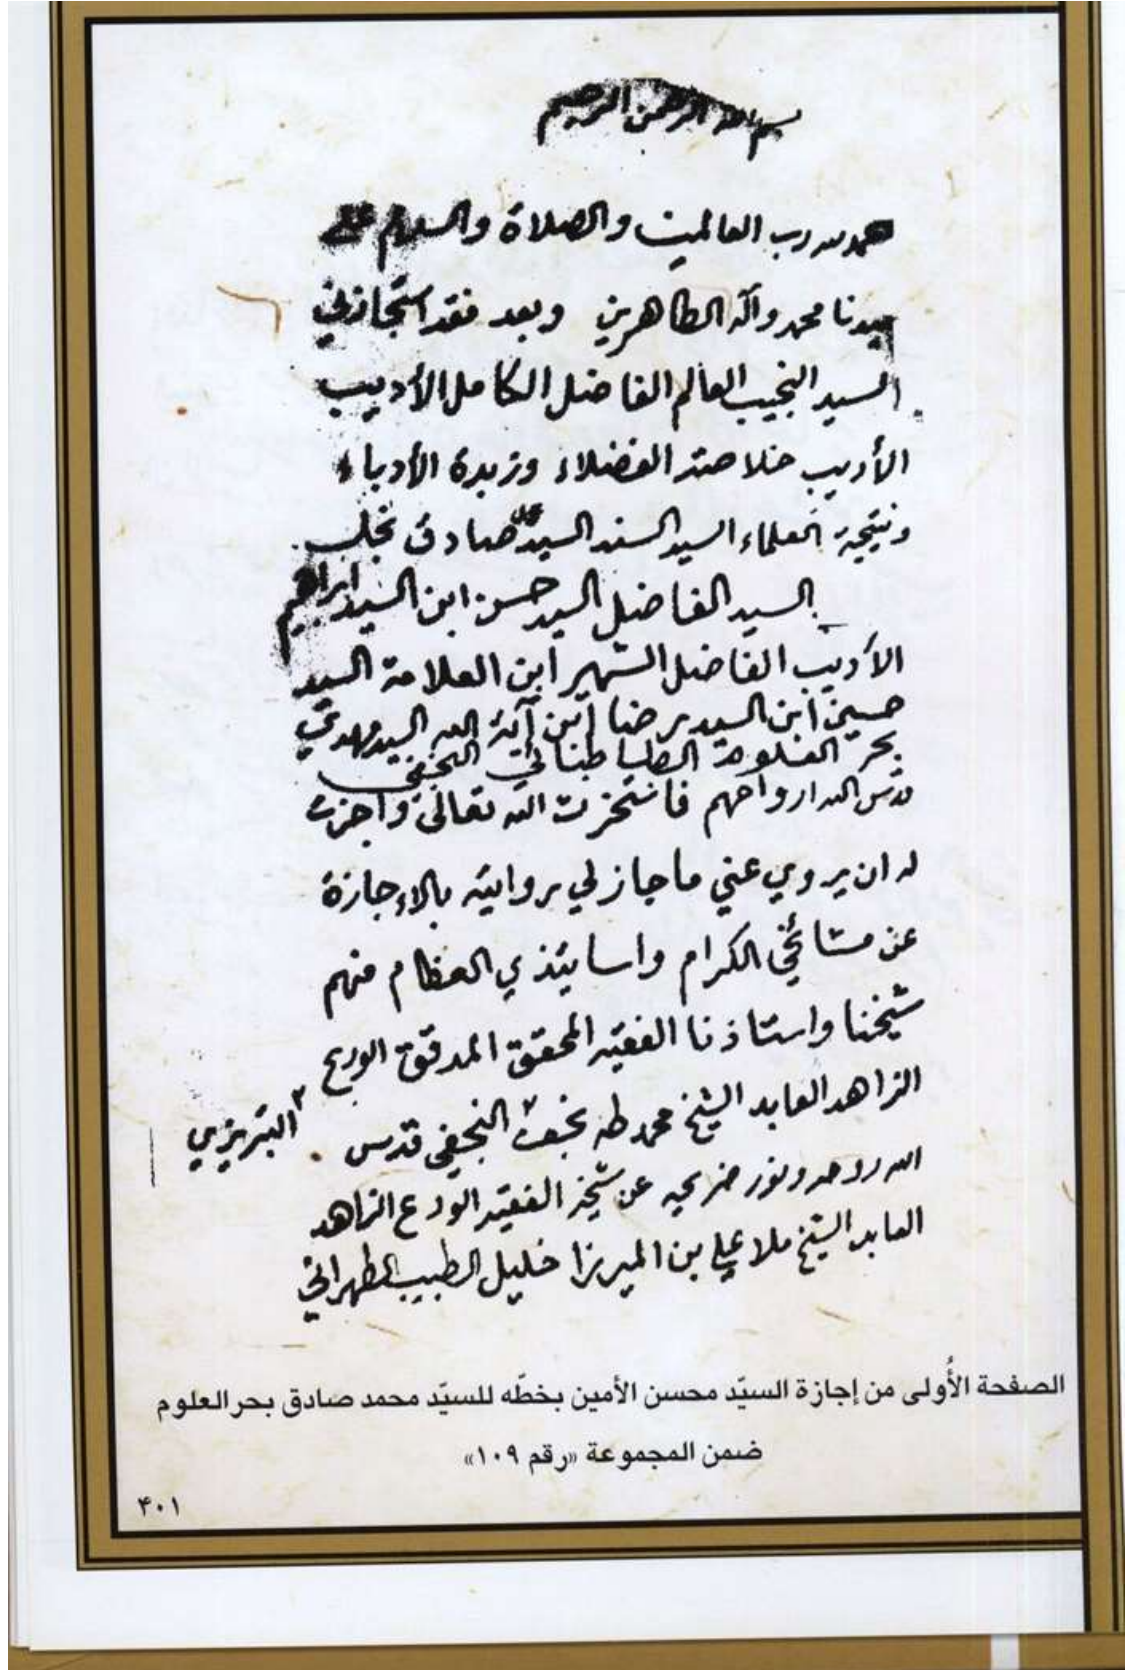 بسم الله الرحمن الرحيم
الحمد لله رب العالمين والصلاة والسلام على
سيدنا محمد وآله الطاهرين وبعد فقد استجازني
السيد النجيب العالم الفاضل الكامل الأديب
الأريب خلاصة الفضلاء وزبدة الأدباء
ونتيجة العلماء السيد السند السيد محمد صادق نجل
السيد الفاضل السيد حسن ابن السيد ابراهيم
الأديب الفاضل الشهير ابن العلامة السيد
حسين ابن السيد رضا ابن آية الله السيد مهدي
بحر العلوم الطباطبائي النجفي
قدس الله ارواحهم فاستخرت الله تعالى واجزت
له ان يروي عني ما جاز لي روايته بالإجازة
عن مشائخي الكرام واساتيذي العظام منهم
شيخنا واستاذنا الفقيه المحقق المدقق الورع
الزاهد العابد الشيخ محمد طه نجف ٢ النجفي قدس
٢ التبريزي
الله روحه ونور ضريحه عن شيخه الفقيه الورع الزاهد
العابد الشيخ ملا علي بن الميرزا خليل الطبيب الطهراني
الصفحة الأُولى من إجازة السيّد محسن الأمين بخطّه للسيّد محمد صادق بحر العلوم
ضمن المجموعة «رقم ١٠٩»
۴۰۱